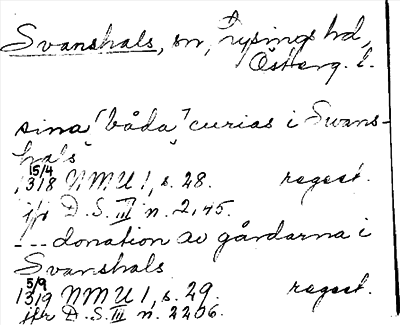 Svanshals, sn, Lysings hd,
Östberg. l.
sina "båda" curias i Swans-
hals"
15/4
1318 NMU 1, s. 28. regest.
jfr D.S. III n. 2145.
--- donation av gårdarna i
Svanshals
5/9
1319 NMU 1, s. 29 regest.
jfr D.S. III n. 2206.